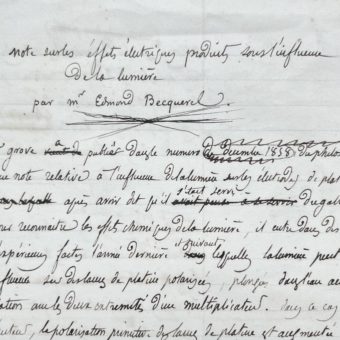 note sur les effets électriques produits sous l'influence
de la lumière
par mr Edmond Becquerel.
grove a publié dans le numero de décembre 1858 du philo
note relative à l'influence de la lumière sur les électrodes de plat
après avoir dit qu'il s'était servi du galv
reconnaitre les effet chimiques de la lumière, il entre dans des
expériences faites l'année dernière et suivant lesquelles la lumière peut
influencer des lames de platine polarisées, plongées dans l'eau
aux deux extremités d'un multiplicateur. dans ce cas
la polarisation primitive des lames de platine est augmentée